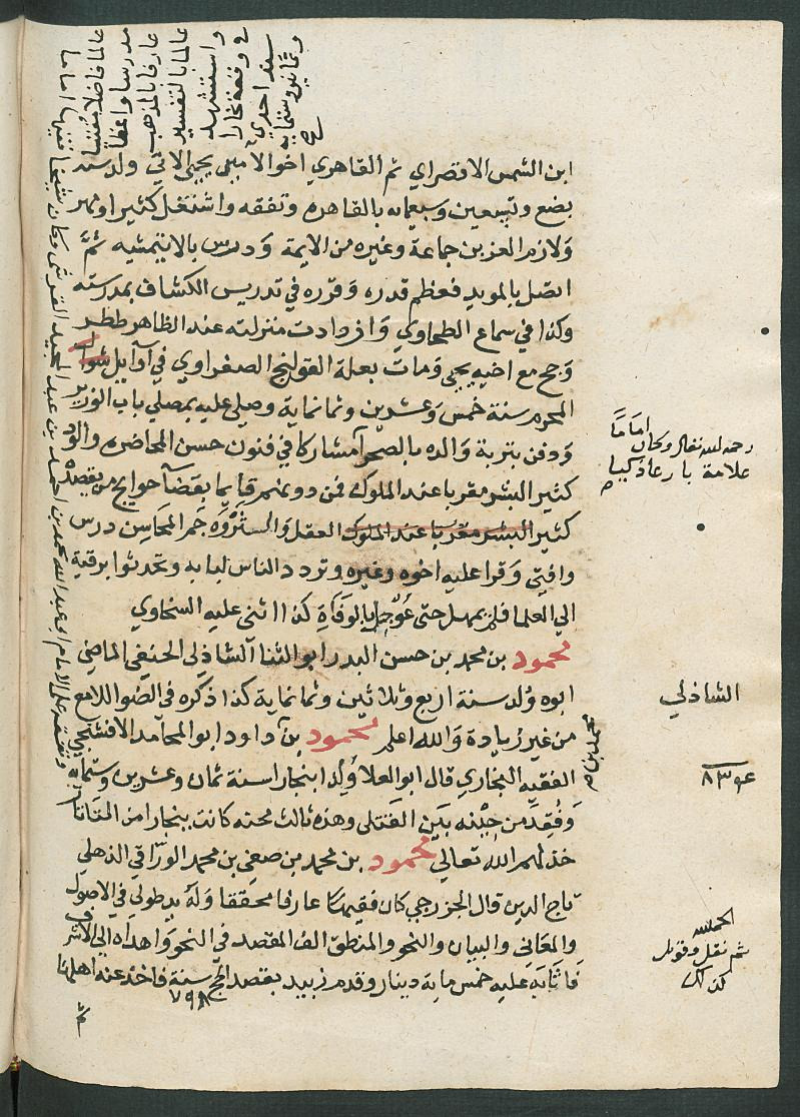 ابن الشمس الاقصراي ثم القاهري اخو الامين يحيى الاتي ولد سنة
بضع وتسعين وسبعماية بالقاهرة وتفقه واشتغل كثيرا ومهر
ولازم العز بن جماعة وغيره من الايمة ودرس بالايتمشيه ثم
اتصل بالمويد فعظم قدره وقرره في تدريس الكشاف بمدرسته
وكذا في سماع الطحاوي وازدادت منزلته عند الظاهر ططر
وحج مع اخيه يحيى ومات بعلة القولنج الصفراوي في اوايل شوال
المحرم سنة خمس وعشرين وثمانماية وصلي عليه بمصلي باب الوزير
ودفن بتربة والده بالصحرا مشاركا في فنون حسن المحاضرة والود
كثير البشر مقربا عند الملوك فمن دونهم قايما بقضا حوايج من يقصده
كثير البشر مقربا عند الملوك العقل والمروة جم المحاسن درس
وافتى وقرا عليه اخوه وغيره وتردد الناس لبابه وتحدثوا برقيه
الي العلما فلم يمهل حتى عوجل بالوفاة كذا اثنى عليه السخاوي
محمود بن محمد بن حسن البدر ابو الثنا الشاذلي الحنفي الماضي
ابوه ولد سنة اربع وثلاثين وثمانماية كذا ذكره في الضو اللامع
من غير زيادة والله اعلم محمود بن داود ابو المحامد الافشنجي
الفقيه البخاري قال ابو العلا ولد ببخارا سنة ثمان وعشرين وستماية
وفقد من حينه بين القتلى وهذه ثالث محنه كانت ببخارا من التتار
خذلهم الله تعالي محمود بن محمد بن صفي بن محمد الوراقي الذهلي
تاج الدين قال الخزرجي كان فقيها عارفا محققا وله يد طولى في الاصول
والمعاني والبيان والنحو والمنطق الف المقصد في النحو واهداه الى الاشرف
فاثابه عليه خمس ماية دينار وقدم زبيد بقصد الحج سنة فاخذ عنه اهلها
٧٩٨
وتفقه على الامام ابي عبد الله محمد بن احمد بن عبد المجيد القرشي وكان شيخا فقيها اماما
عالما فاضلا مفتيا
مدرسا واعظا
عارفا بالمذهب
عالما بالتفسير
واستشهد
في وقعة بخارا
سنة احدي
وثمانين وستماية
صح
رحمه الله تعالى وكان اماما
علامة بارعا ذكيا
الشاذلي
محمد بن
٨٣٤
الحمد لله
ثم نقل وقوبل
كذلك